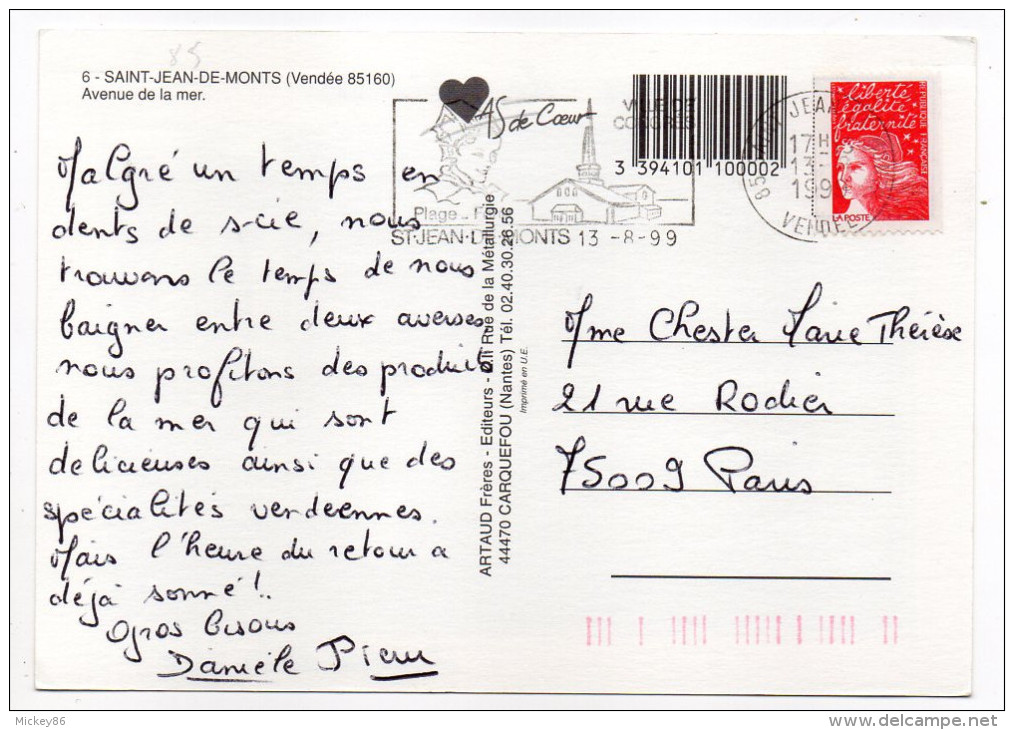 85
6 - SAINT-JEAN-DE-MONTS (Vendée 85160)
Avenue de la mer.
Malgré un temps en
dents de scie, nous
trouvons le temps de nous
baigner entre deux averses
nous profitons des produits
de la mer qui sont
delicieuses ainsi que des
spécialités vendéennes.
Mais l'heure du retour a
déjà sonné!..
Gros bisous
Danièle
AS de Cœur
VILLE DE
CONGRES
Plage -
ST-JEAN-DE-MONTS 13 -8-99
3 394101 100002
85
JEAN
17H
13-
199
VENDEE
liberté
égalité
fraternité
REPUBLIQUE FRANÇAISE
LA POSTE
ARTAUD Frères - Editeurs - Rue de la Métallurgie
44470 CARQUEFOU (Nantes) Tél. 02.40.30.26.56
Imprimé en U.E.
Mme Chester Marie Thérèse
21 rue Rodier
75009 Paris
Mickey86
www.delcampe.net